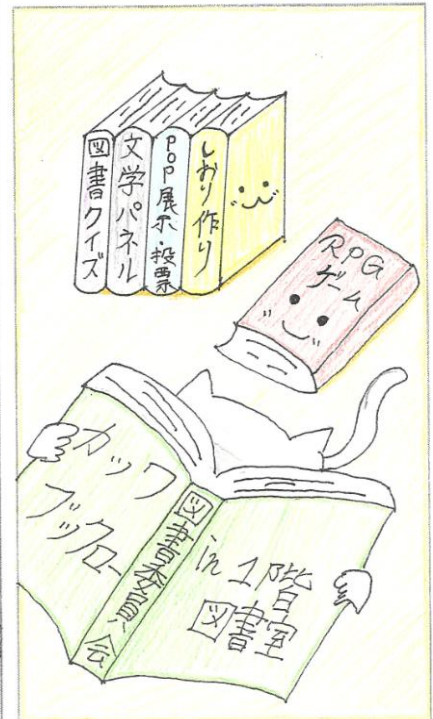 図書クイズ
文学パネル
POP展示・投票
しおり作り
RPG
ゲーム
カッワ
ブックロー
図書委員会
in 1階
図書室